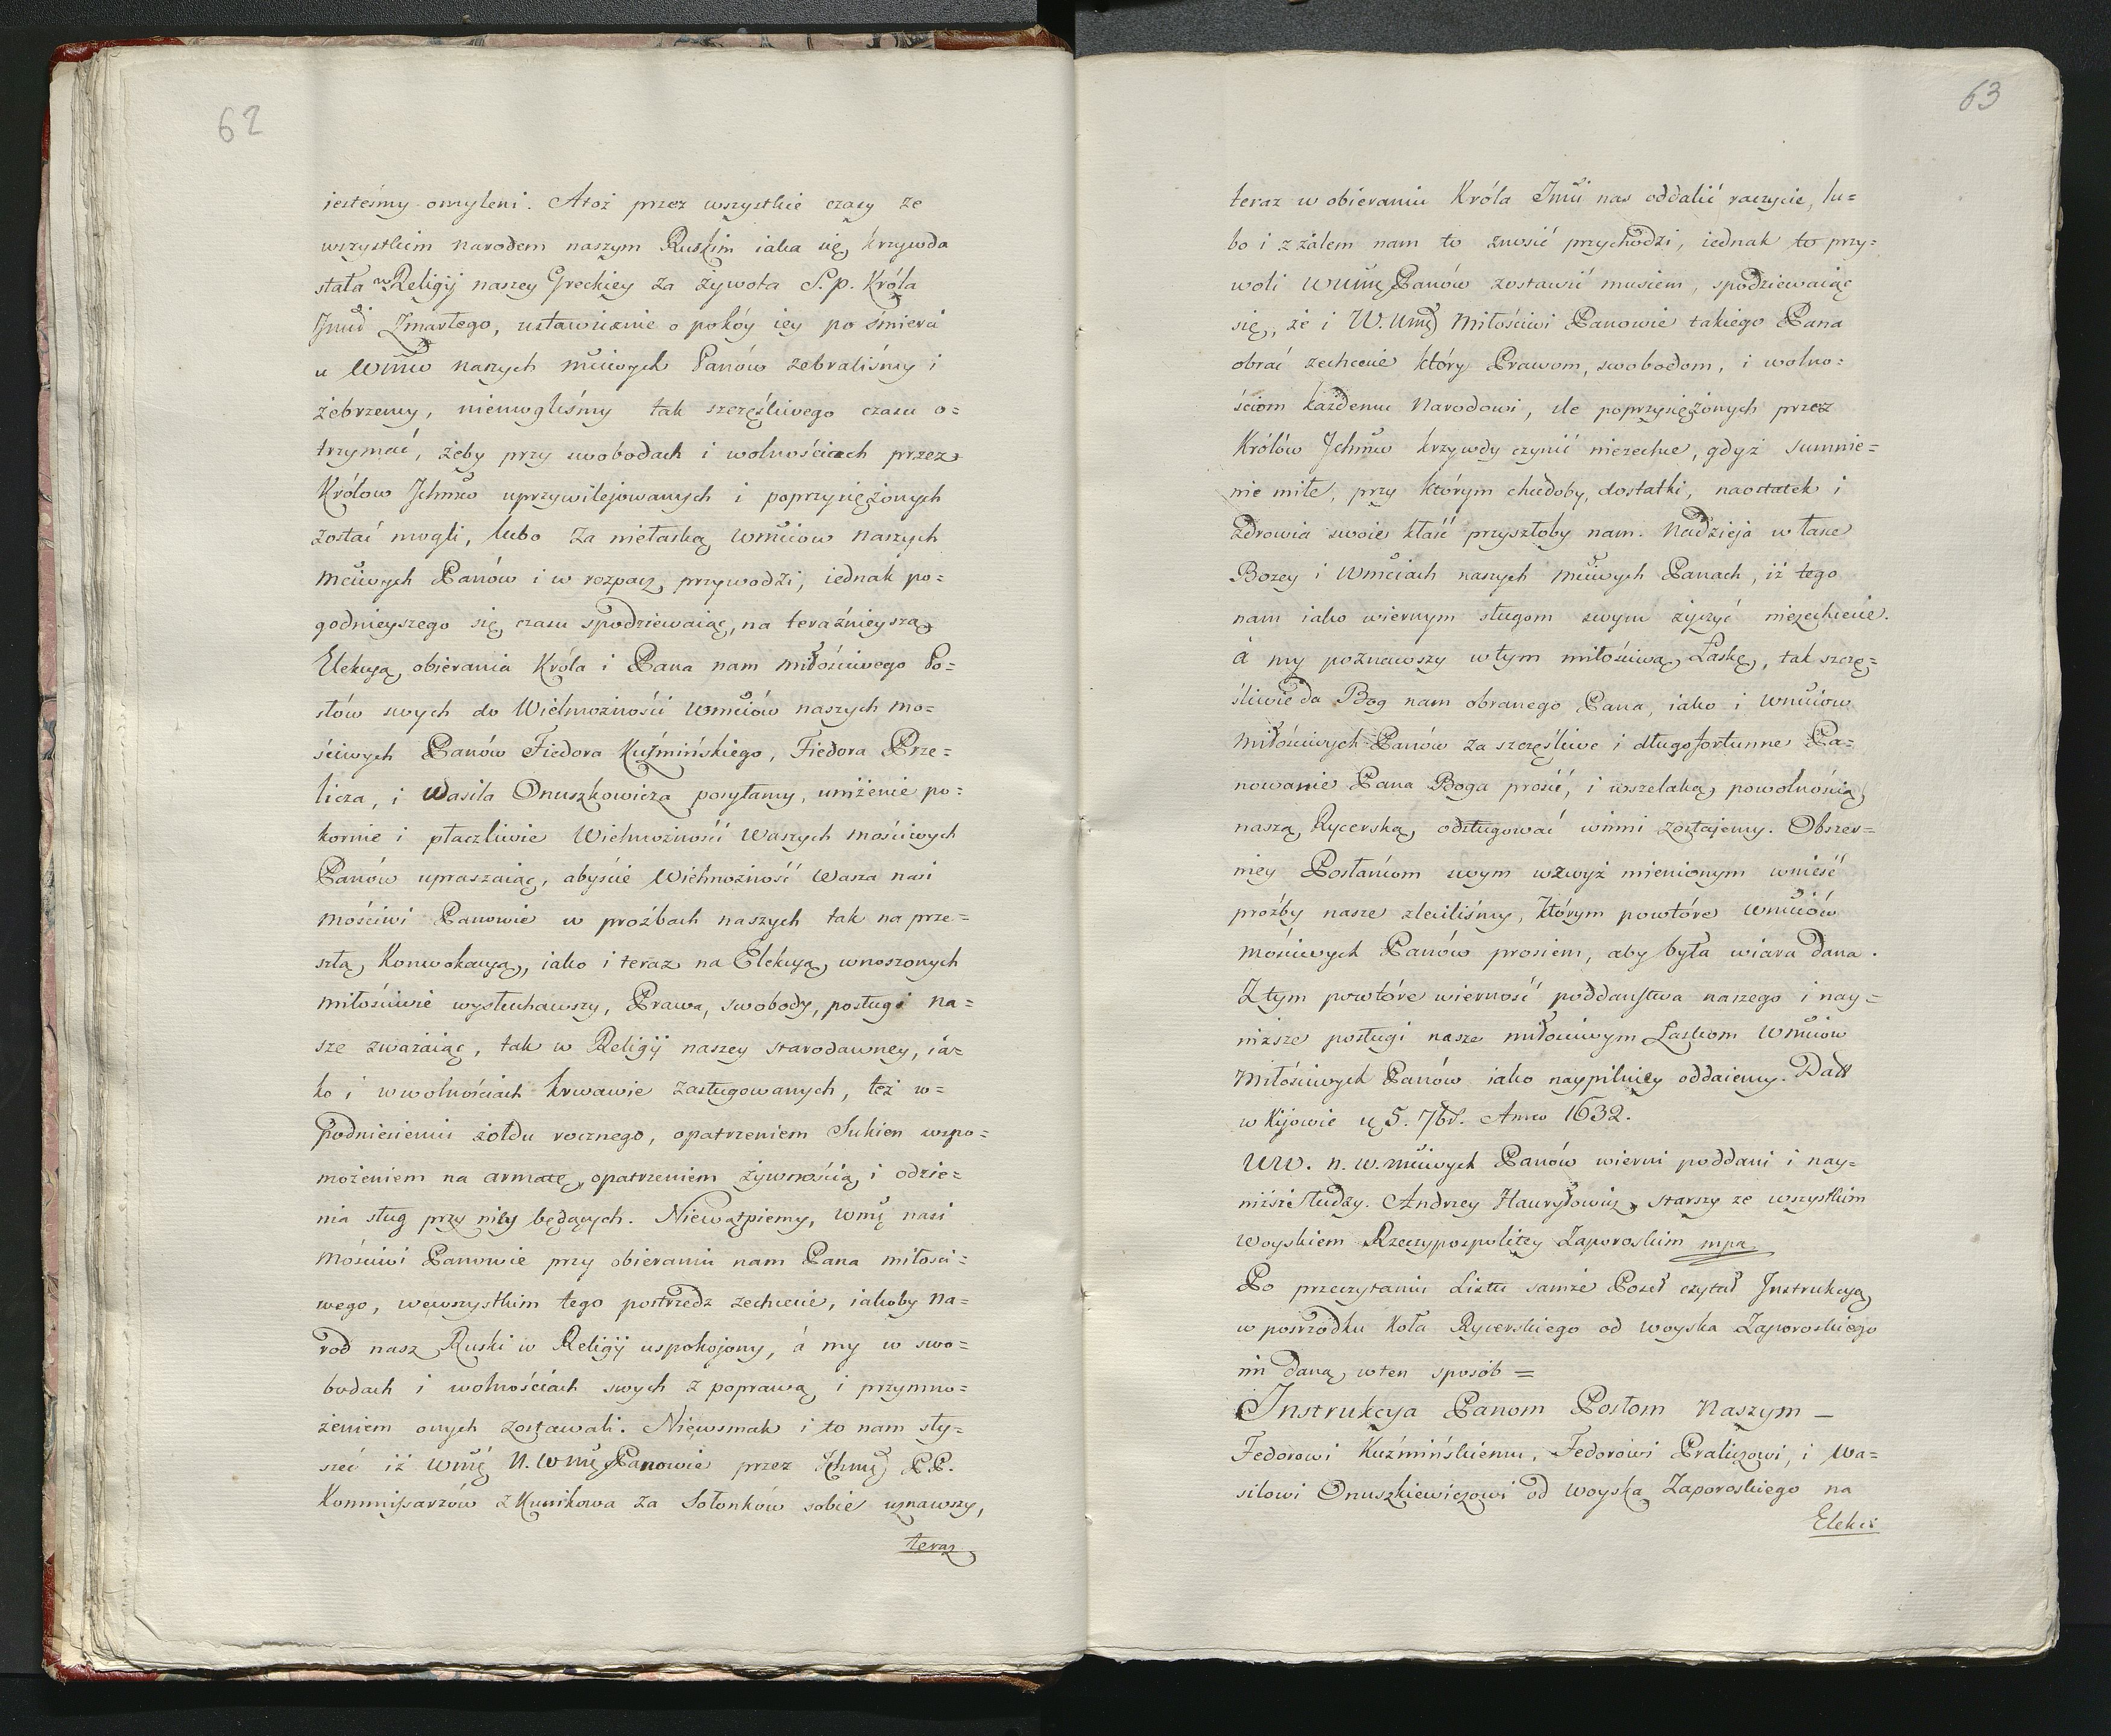 62
jesteśmy omyleni. Atoż przez wszystkie czasy ze
wszystkim narodem naszym Ruskim iaka się krzywda
stała w Religij naszey Greckiey za żywota S. p. Króla
Jmći Zmarłego, ustawicznie o pokóy iey po śmierci
u Wmćiw naszych mćiwych Panów żebraliśmy i
żebrzemy, niemogliśmy tak szczęśliwego czasu o=
trzymać, żeby przy swobodach i wolnościach przez
Królow Jchmćiw uprzywilejowanych i poprzysiężonych
zostać mogli, lubo za niełaską Wmćiow naszych
Mćiwych Panów i w rozpacz przywodzi, iednak po=
godnieyszego się czasu spodziewaiąc, na teraźnieyszą
Elekcyą obierania Króla i Pana nam miłościwego Po=
słów swych do Wielmożności Wmćiów naszych mo=
ściwych Panów Fiedora Kuźmińskiego, Fiedora Prze=
licza, i Wasila Onuszkowicza posyłamy, uniżenie po=
kornie i płaczliwie Wielmożność Waszych mościwych
Panów upraszaiąc, abyście Wielmożność Wasza nasi
Mościwi Panowie w proźbach naszych tak na prze=
szłą Konwokacyą, iako i teraz na Elekcyą wnoszonych
miłościwie wysłuchawszy, Prawa, swobody, posługi na=
sze zważaiąc, tak w Religij naszey starodawney, ia=
ko i w wolnościach krwawie zasługowanych, też w=
podniesieniu żołdu rocznego, opatrzeniem Sukien wspo=
możeniem na armatę, opatrzeniem żywnością i odzie=
nia sług przy niey będących. Niewątpiemy, Wmć nasi
Mościwi Panowie przy obieraniu nam Pana miłości=
wego, wewszystkim tego postrzedz zechcecie, iakoby na=
rod nasz Ruski w Religij uspokojony, á my w swo=
bodach i wolnościach swych z poprawą i przymno=
żeniem onych zostawali. Niewsmak i to nam sły=
szeć iż Wmć N. W mć Panowie przez Jchmć PP.
Kommissarzów z Kunikowa za Sołonków sobie uznawszy,
teraz
63
teraz w obieraniu Króla Jmći nas oddalić raczycie, lu=
bo i z żalem nam to znosić przychodzi, iednak to przy=
woli Wmć Panów zostawić musiem, spodziewaiąc
się, że i W. Umć Miłościwi Panowie takiego Pana
obrać zechcecie który Prawom, swobodom, i wolno=
ściom każdemu Narodowi, ile poprzysiężonych przez
Królów Jchmćiw krzywdy czynić niezechce, gdyż sumnie=
nie miłe, przy którym chudoby, dostatki, naostatek i
zdrowia swoie kłaść przyszłoby nam. Nadzieja w łasce
Bozey i Wmćiach naszych mćiwych Panach, iż tego
nam iako wiernym sługom swym życzyć niezechcecie.
á my poznawszy w tym miłościwą Łaskę, tak szczę=
śliwie da Bog nam obranego Pana, iako i Wmćiow
Miłościwych Panów za szczęśliwe i długofortunne Pa=
nowanie Pana Boga prosić, i wszelaką powolnością
naszą Rycerską odsługować winni zostajemy. Obszer=
niey Posłańcom swym wzwyż mienionym wnieść
proźby nasze zleciliśmy, którym powtóre Wmćiów
Mościwych Panów prosiem, aby była wiara dana.
Z tym powtóre wierność poddaństwa naszego i nay=
niższe posługi nasze miłościwym Łaskom Wmćiow
Miłościwych Panów iako naypilniey oddaiemy. Datt
w Kijowie 5. 7br. Anno 1632.
UW. n. w. mćiwych Panów wierni poddani i nay=
niżsi słudzy. Andrzey Hawryłowicz, starszy ze wszystkim
Woyskiem Rzeczypospolitey Zaporoskim mpr.
Po przeczytaniu Listu samże Poseł czytał Jnstrukcyą
w posrzodku Koła Rycerskiego od Woyska Zaporoskiego
im daną, w ten sposób =
Jnstrukcya Panom Posłom Naszym —
Fedorowi Kuźmińskiemu, Fedorowi Praliczowi, i Wa=
silowi Onuszkiewiczowi od Woyska Zaporoskiego na
Elekci